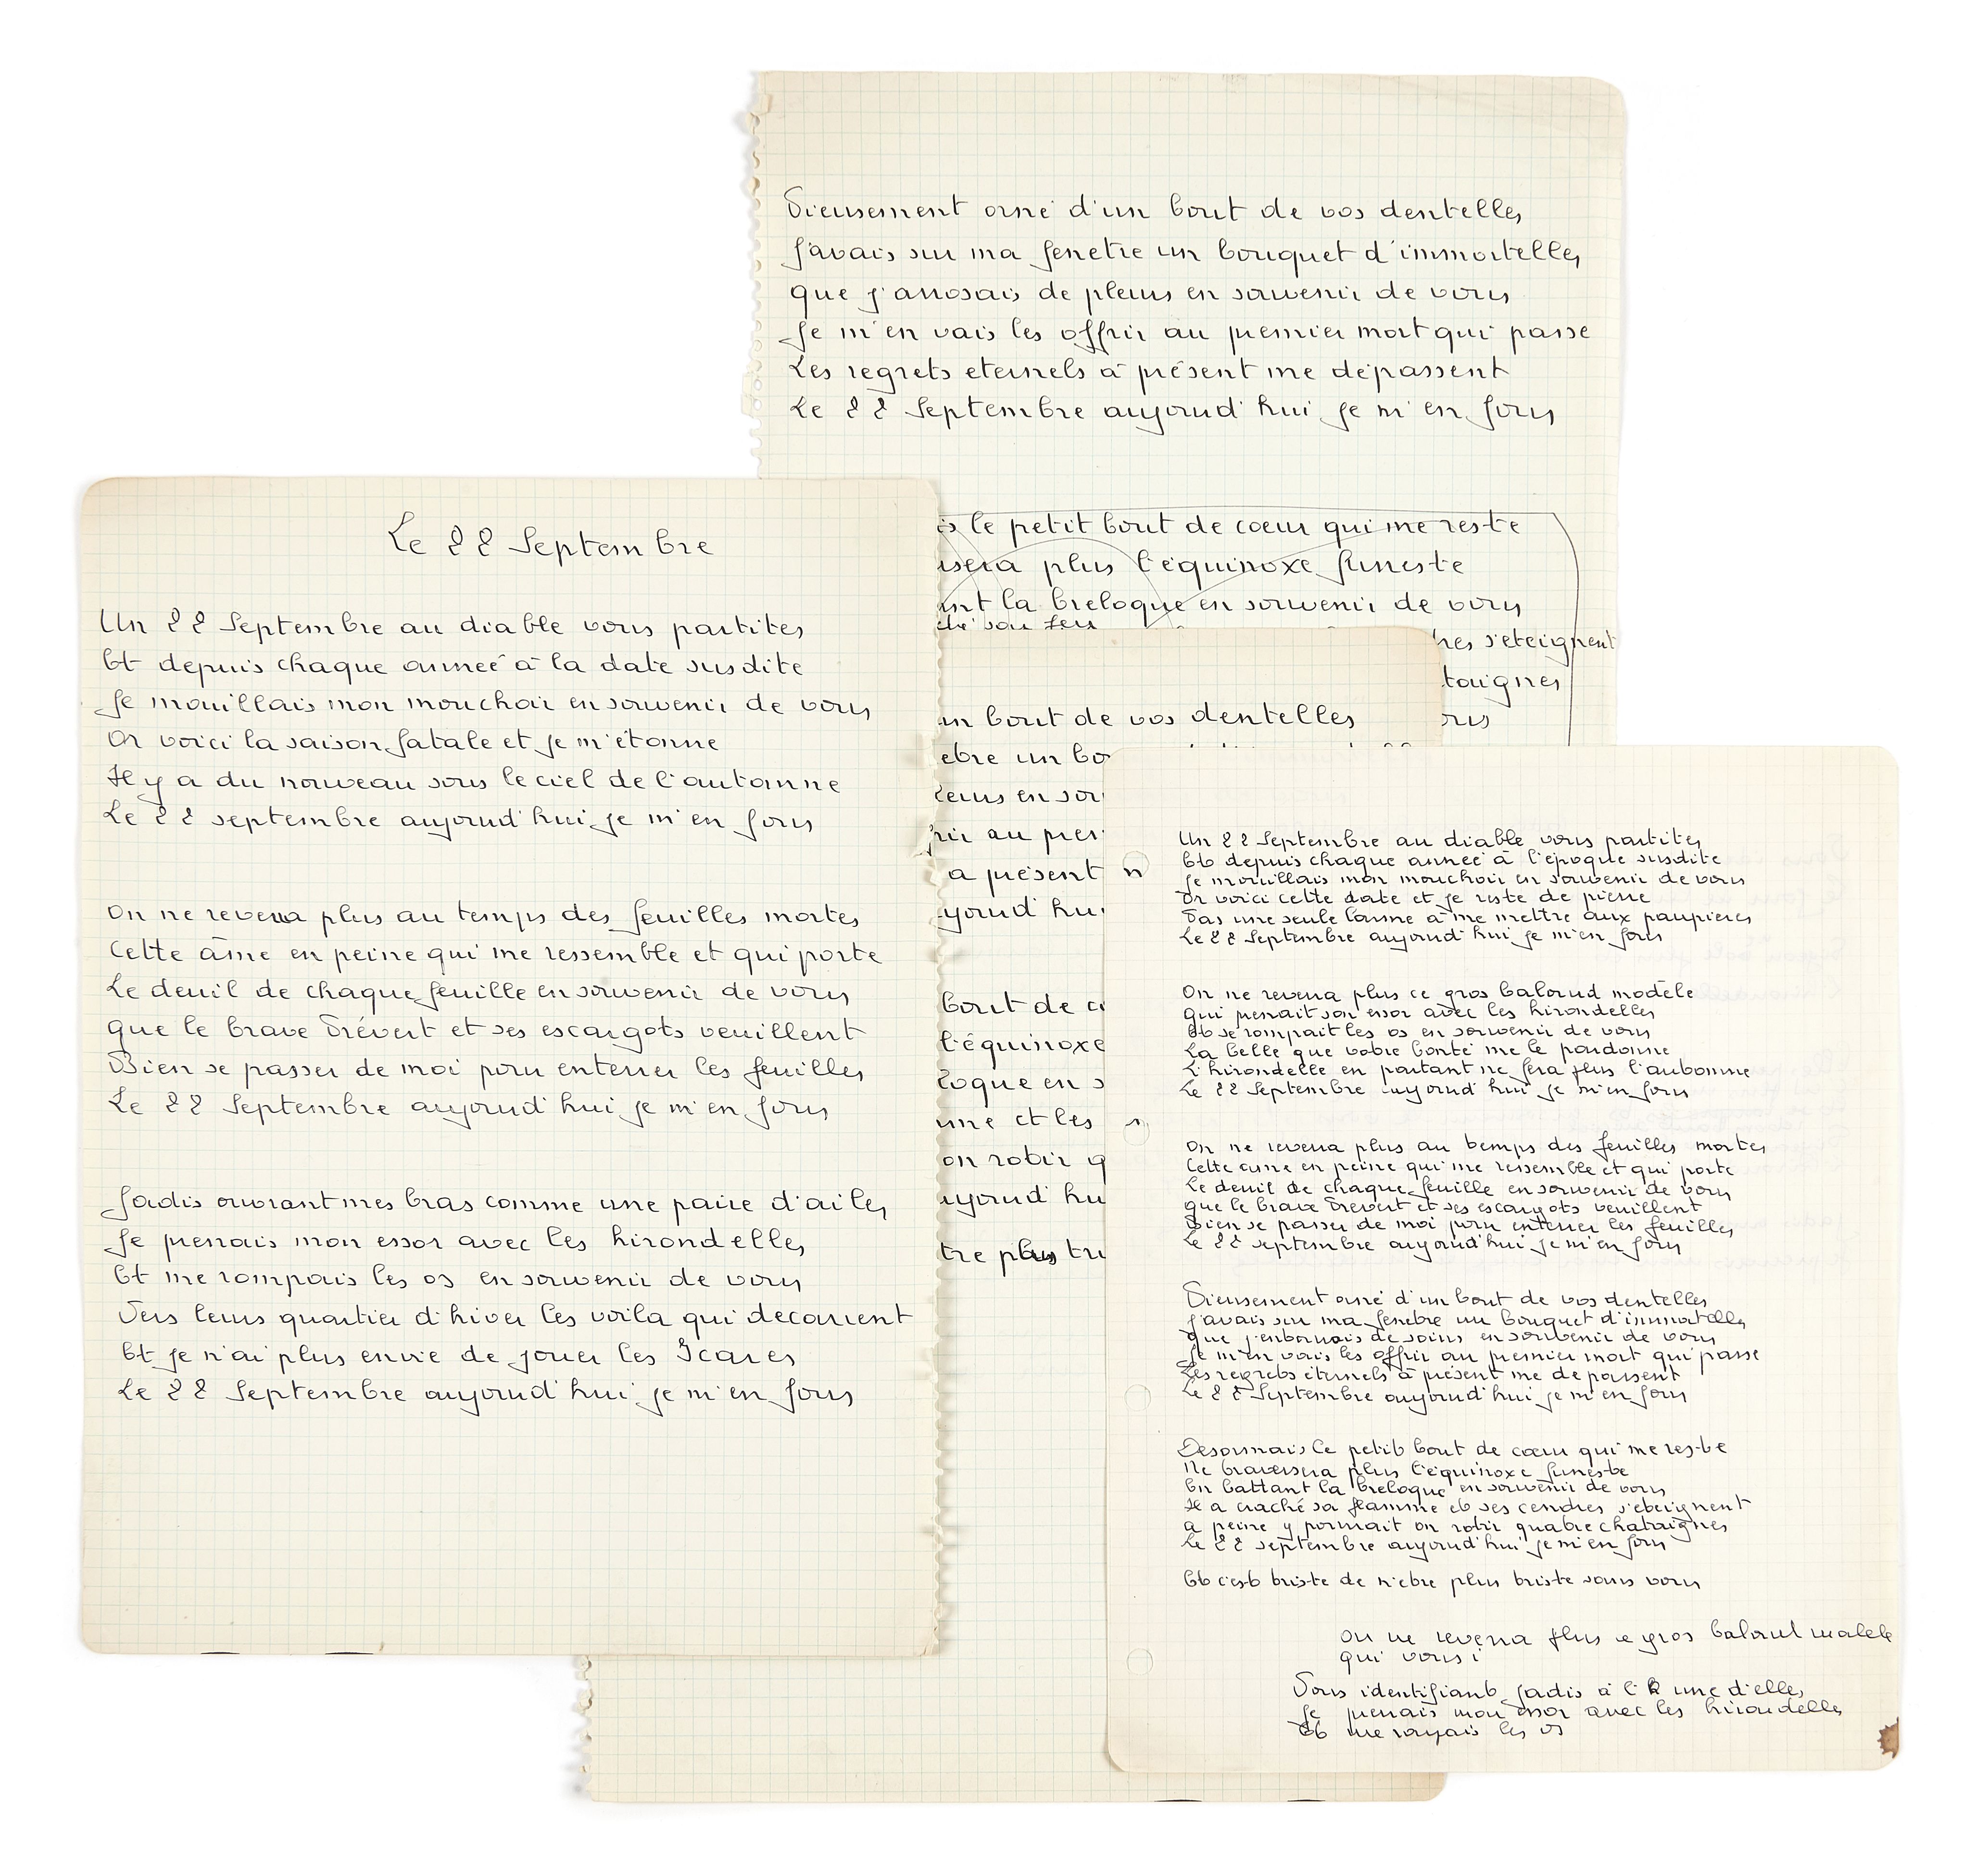 Pieusement orné d'un bout de vos dentelles
J'avais sur ma fenetre un bouquet d'immortelles
que j'arrosais de pleurs en souvenir de vous
Je m'en vais les offrir au premier mort qui passe
Les regrets eternels à présent me dépassent
Le 22 Septembre aujourd'hui je m'en fous
le petit bout de cœur qui me reste
plus l'équinoxe funeste
la breloque en souvenir de vous
s'eteignent
Le 22 Septembre
Un 22 Septembre au diable vous partites
Et depuis chaque année à la date susdite
Je mouillais mon mouchoir en souvenir de vous
Or voici la saison fatale et je m'étonne
Il y a du nouveau sous le ciel de l'automne
Le 22 septembre aujourd'hui je m'en fous
On ne reverra plus au temps des feuilles mortes
Cette âme en peine qui me ressemble et qui porte
Le deuil de chaque feuille en souvenir de vous
que le brave Prévert et ses escargots veuillent
Bien se passer de moi pour enterrer les feuilles
Le 22 Septembre aujourd'hui je m'en fous
Jadis ouvrant mes bras comme une paire d'ailes
Je prenais mon essor avec les hirondelles
Et me rompais les os en souvenir de vous
Vers leurs quartier d'hiver les voila qui decarrent
Et je n'ai plus envie de jouer les Icares
Le 22 Septembre aujourd'hui je m'en fous
bout de vos dentelles
un
en
au
a présent
bout de
l'équinoxe
en
et les
rotir
plus
Un 22 Septembre au diable vous partites
Et depuis chaque année à l'époque susdite
Je mouillais mon mouchoir en souvenir de vous
Or voici cette date et je reste de pierre
Pas une seule larme à me mettre aux paupieres
Le 22 Septembre aujourd'hui je m'en fous
On ne reverra plus ce gros balourd modèle
qui prenait son essor avec les hirondelles
Et se rompait les os en souvenir de vous
La belle que votre bonté me le pardonne
L'hirondelle en partant ne fera plus l'automne
Le 22 Septembre aujourd'hui je m'en fous
On ne reverra plus au temps des feuilles mortes
Cette ame en peine qui me ressemble et qui porte
Le deuil de chaque feuille en souvenir de vous
que le brave Prevert et ses escargots veuillent
Bien se passer de moi pour enterrer les feuilles
Le 22 septembre aujourd'hui je m'en fous
Pieusement orné d'un bout de vos dentelles
J'avais sur ma fenetre un bouquet d'immortelles
que j'entourais de soins en souvenir de vous
Je m'en vais les offrir au premier mort qui passe
Les regrets éternels à présent me depassent
Le 22 Septembre aujourd'hui je m'en fous
Desormais le petit bout de cœur qui me reste
Ne traversera plus l'équinoxe funeste
En battant la breloque en souvenir de vous
Il a craché sa flamme et ses cendres s'eteignent
a peine y pourrait on rotir quatre chataignes
Le 22 septembre aujourd'hui je m'en fous
Et c'est triste de n'etre plus triste sans vous
On ne reverra plus ce gros balourd modele
qui vous i
Vous identifiant jadis à l' une d'elles
Je prenais mon essor avec les hirondelles
Et me les os